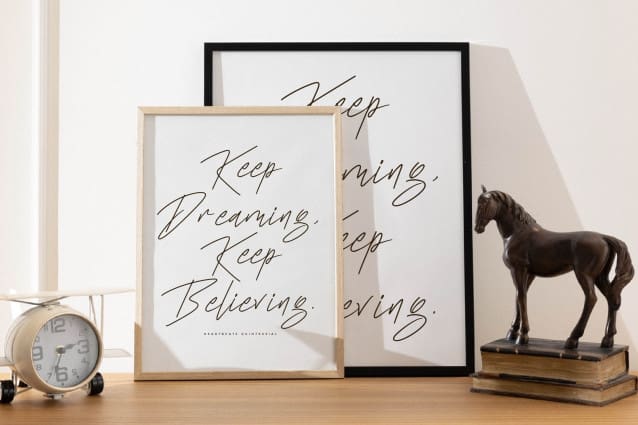 Keep
Dreaming.
Keep
Believing.
Keep
ming,
Keep
eving.
12